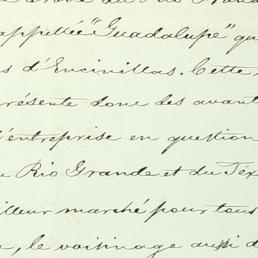 appellée "Guadalupe" qu
s d'Encinillas. Cette
résente donc des avant
l'entreprise en question
u Rio Grande et du Téx
illeur marché pour tous
e, le voisinage aussi d